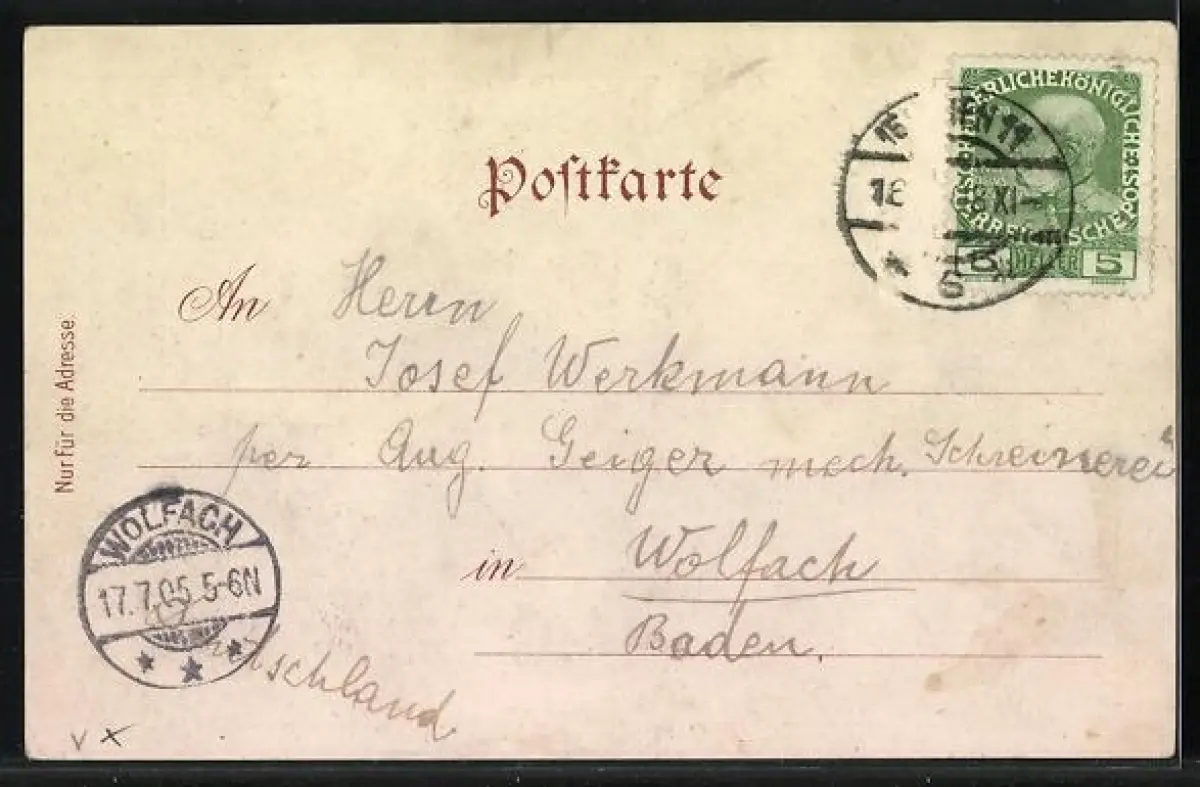 Postkarte
KAISERLICHE KÖNIGLICHE ÖSTERREICHISCHE POST
5 HELLER 5
WIEN 11
XI
6
An Herrn
Josef Werkmann
per Aug. Geiger mech. Schreinerei
in Wolfach
Baden.
Deutschland
Nur für die Adresse.
WOLFACH
17.7.05 5-6N
V X